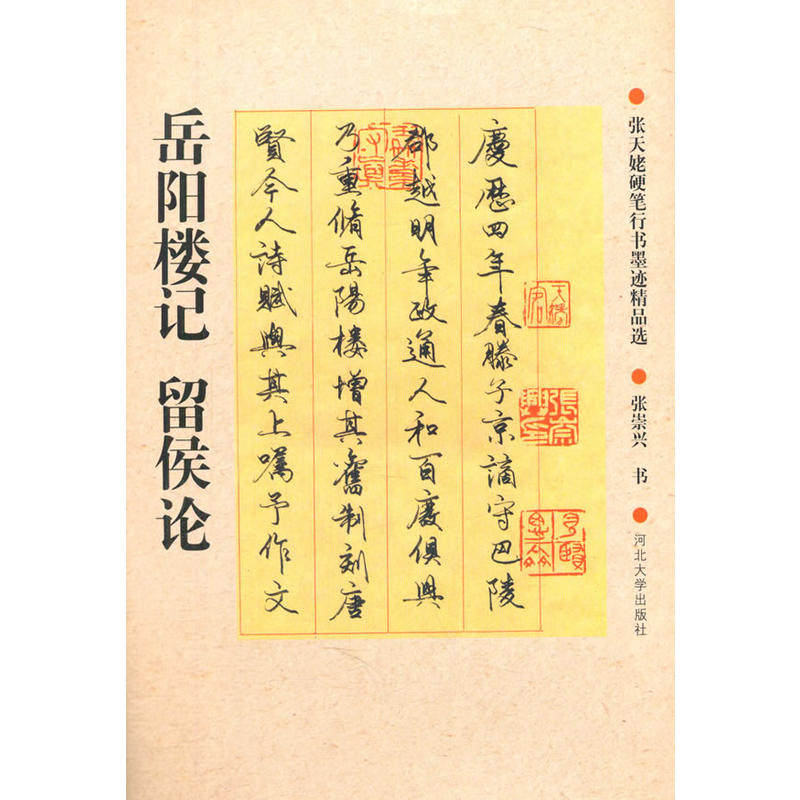 张天姥硬笔行书墨迹精品选
张崇兴 书
河北大学出版社
慶歷四年春滕子京謫守巴陵
郡越明年政通人和百廢俱興
乃重脩岳陽樓增其舊制刻唐
賢今人詩賦與其上囑予作文
岳阳楼记 留侯论